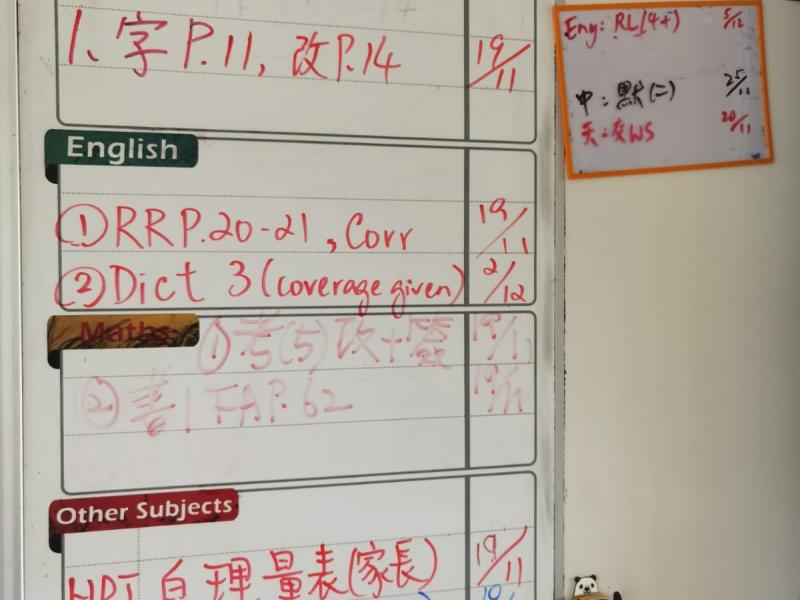 1. 字 P.11, 改 P.14 19/11
English
① RR P.20-21, Corr 19/11
② Dict 3 (coverage given) 2/12
Maths
① 考(5) 改+簽 19/11
② 書 1 FA P.62 19/11
Other Subjects
自理量表(家長) 19/11
Eng: RL(4+) 5/12
中: 默(二) 25/11
交WS 20/11